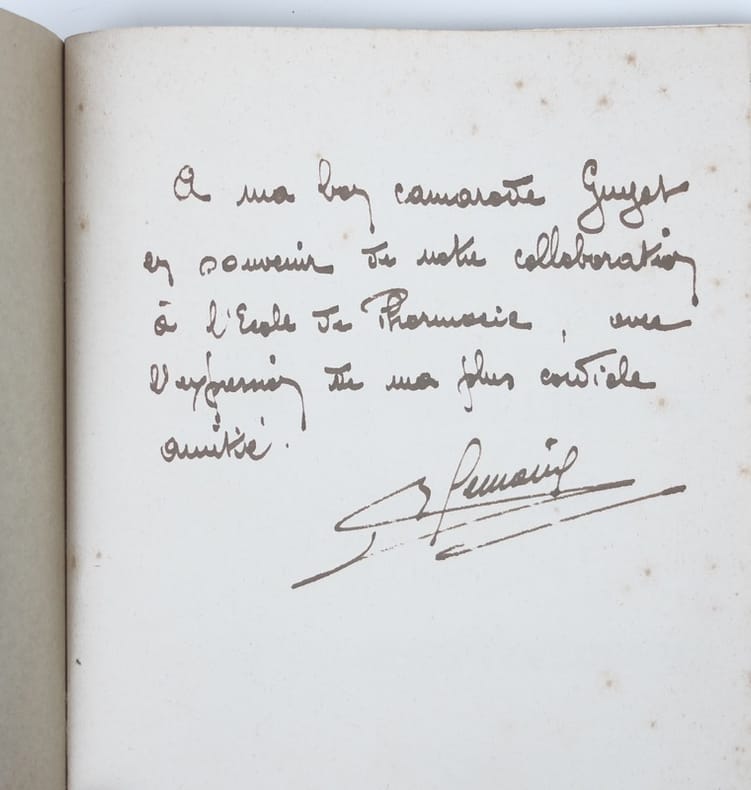 A mon bon camarade Guyot
en souvenir de notre collaboration
à l'Ecole de Pharmacie, avec
l'expression de ma plus cordiale
amitié.